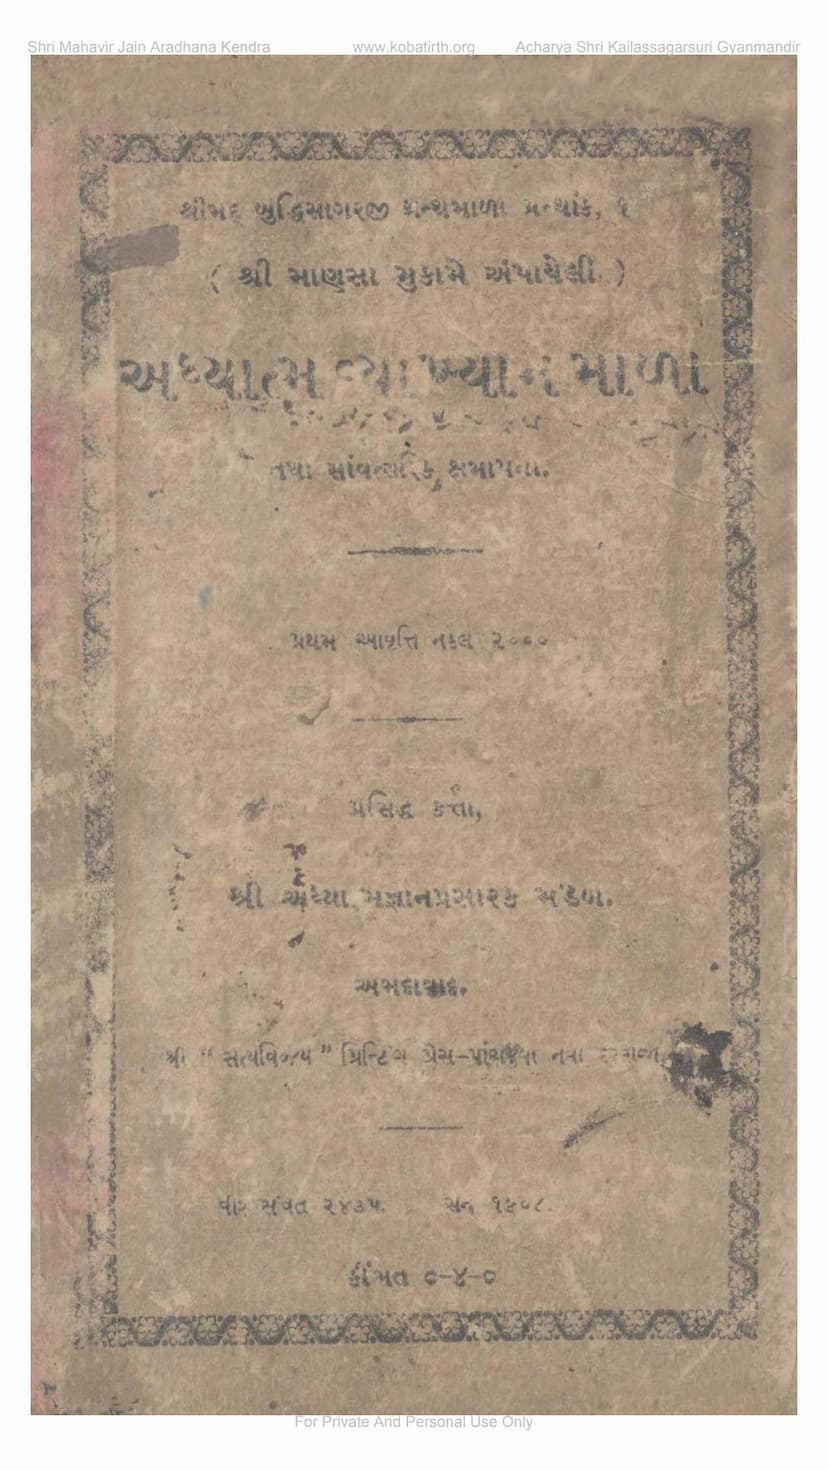 Shri Mahavir Jain Aradhana Kendra www.kobatirth.org Acharya Shri Kailassagarsuri Gyanmandir
શ્રીમદ્ બુદ્ધિસાગરજી ગ્રન્થમાળા ગ્રન્થાંક, ૧
( શ્રી માણસા મુકામે અપાયેલી )
અધ્યાત્મ વ્યાખ્યાનમાળા
તથા સાંવત્સરિક ક્ષમાપના.
પ્રથમ આવૃત્તિ નકલ ૨૦૦૦
પ્રસિદ્ધ કર્ત્તા,
શ્રી અધ્યાત્મજ્ઞાનપ્રસારક મંડળ.
અમદાવાદ.
શ્રી “ સત્યવિજય ” પ્રિન્ટિંગ પ્રેસ–પાંચકુવા નવા દરવાજા
વીર સંવત ૨૪૩૫ સન ૧૯૦૮.
કીંમત ૦–૪–૦
For Private And Personal Use Only